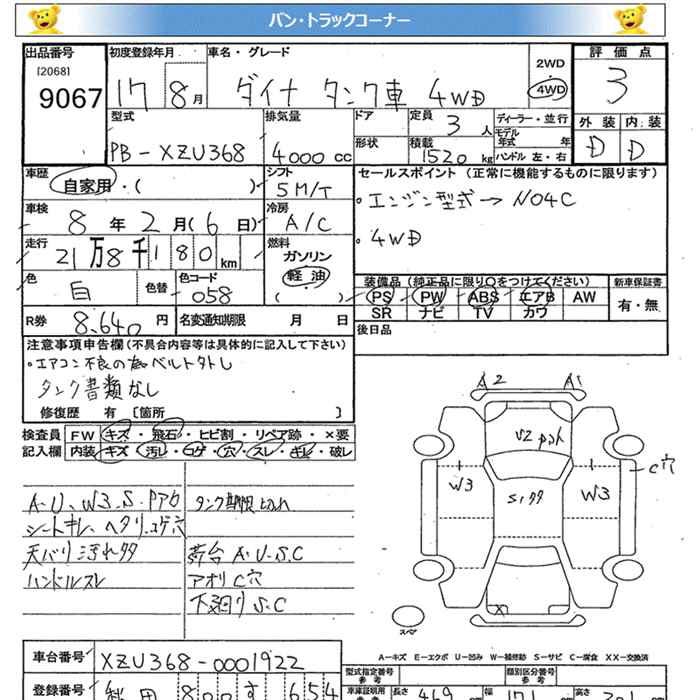 バン・トラックコーナー
出品番号
[2068]
9067
初度登録年月
17 8月
車名・グレード
ダイナ タンク車 4WD
2WD
・
4WD
評価点
3
外装 内装
D D
型式
PB-XZU368
排気量
4000 cc
ドア
形状
定員
3人
積載
1520 kg
ディーラー・並行
モデル年式 年
ハンドル 左・右
車歴
自家用・( )
シフト
5M/T
車検
8年2月(6日)
冷房
A/C
走行
21万8千180km
燃料
ガソリン
軽油
( )
色
白
色替
色コード
058
R券
8,640円
名変通知期限 月 日
セールスポイント (正常に機能するものに限ります)
・エンジン型式→N04C
・4WD
装備品(純正品に限り○をつけてください)
PS PW ABS エアB AW
SR ナビ TV カワ
新車保証書
有・無
後日品
注意事項申告欄(不具合内容等は具体的に記入して下さい)
・エアコン不良の為ベルト外し
タンク書類なし
修復歴 有 [箇所 ]
検査員 FW キズ・飛石・ヒビ割・リペア跡・×要
記入欄 内装 キズ・汚レ・コゲ・穴・スレ・キレ・破レ
A.U、W3.S.
シートキレ、ヘタリ、コゲ穴
天バリ汚れ多
ハンドルスレ
タンク期限切れ
荷台 A.U.S.C
アオリ C穴
下廻り S.C
A2 A1
W3
S1多
W3
C穴
X
スペア
A−キズ E−エクボ U−凹み W−補修跡 S−サビ C−腐食 XX−交換済
車台番号 XZU368-0001922
登録番号 秋田 800 す 654
型式指定番号
参考
類別区分番号
参考
車庫証明用
長さ 469 cm
幅 171
高さ